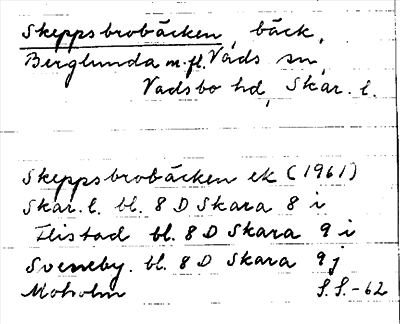 Skeppsbrobäcken, bäck,
Berglunda m.fl. Vads sn,
Vadsbo hd, Skar. l.
Skeppsbrobäcken ek (1961)
Skar. l. bl. 8 D Skara 8 i
Flistad bl. 8 D Skara 9 i
Sveneby. bl. 8 D Skara 9 j
Moholm S.S.-62